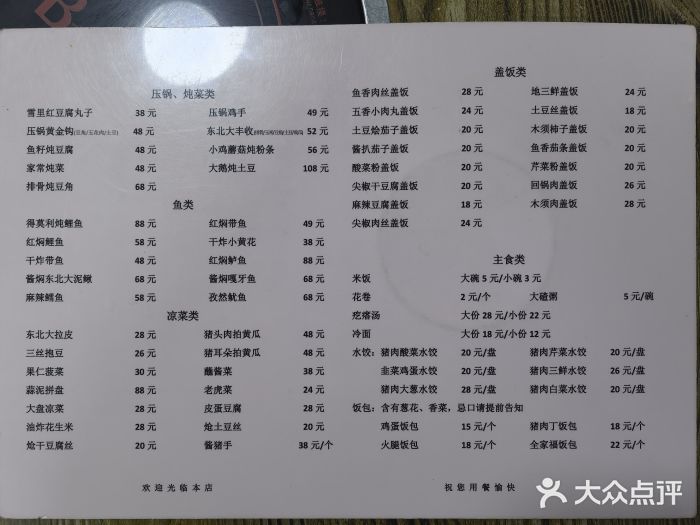 压锅、炖菜类
雪里红豆腐丸子 38 元 压锅鸡手 49 元
压锅黄金钩 48 元 东北大丰收 52 元
鱼籽炖豆腐 48 元 小鸡蘑菇炖粉条 56 元
家常炖菜 48 元 大鹅炖土豆 108 元
排骨炖豆角 68 元
鱼类
得莫利炖鲤鱼 88 元 红焖带鱼 49 元
红焖鲤鱼 58 元 干炸小黄花 38 元
干炸带鱼 48 元 红焖鲈鱼 88 元
酱焖东北大泥鳅 68 元 酱焖嘎牙鱼 68 元
麻辣鳕鱼 58 元 孜然鱿鱼 68 元
凉菜类
东北大拉皮 28 元 猪头肉拍黄瓜 48 元
三丝拖豆 26 元 猪耳朵拍黄瓜 48 元
果仁菠菜 30 元 蘸酱菜 38 元
蒜泥拼盘 88 元 老虎菜 24 元
大盘凉菜 28 元 皮蛋豆腐 28 元
油炸花生米 28 元 炝土豆丝 20 元
炝干豆腐丝 20 元 酱猪手 38 元/个
欢迎光临本店
盖饭类
鱼香肉丝盖饭 28 元 地三鲜盖饭 24 元
五香小肉丸盖饭 24 元 土豆丝盖饭 18 元
土豆烩茄子盖饭 20 元 木须柿子盖饭 20 元
酱扒茄子盖饭 20 元 鱼香茄条盖饭 20 元
酸菜粉盖饭 20 元 芹菜粉盖饭 20 元
尖椒干豆腐盖饭 20 元 回锅肉盖饭 26 元
麻辣豆腐盖饭 18 元 木须肉盖饭 28 元
尖椒肉丝盖饭 24 元
主食类
米饭 大碗 5 元/小碗 3 元
花卷 2 元/个 大碴粥 5 元/碗
疙瘩汤 大份 28 元/小份 22 元
冷面 大份 18 元/小份 12 元
水饺：猪肉酸菜水饺 20 元/盘 猪肉芹菜水饺 20 元/盘
韭菜鸡蛋水饺 20 元/盘 猪肉三鲜水饺 26 元/盘
猪肉大葱水饺 28 元/盘 猪肉白菜水饺 20 元/盘
饭包：含有葱花、香菜，忌口请提前告知
鸡蛋饭包 15 元/个 猪肉丁饭包 18 元/个
火腿饭包 18 元/个 全家福饭包 22 元/个
祝您用餐愉快
大众点评